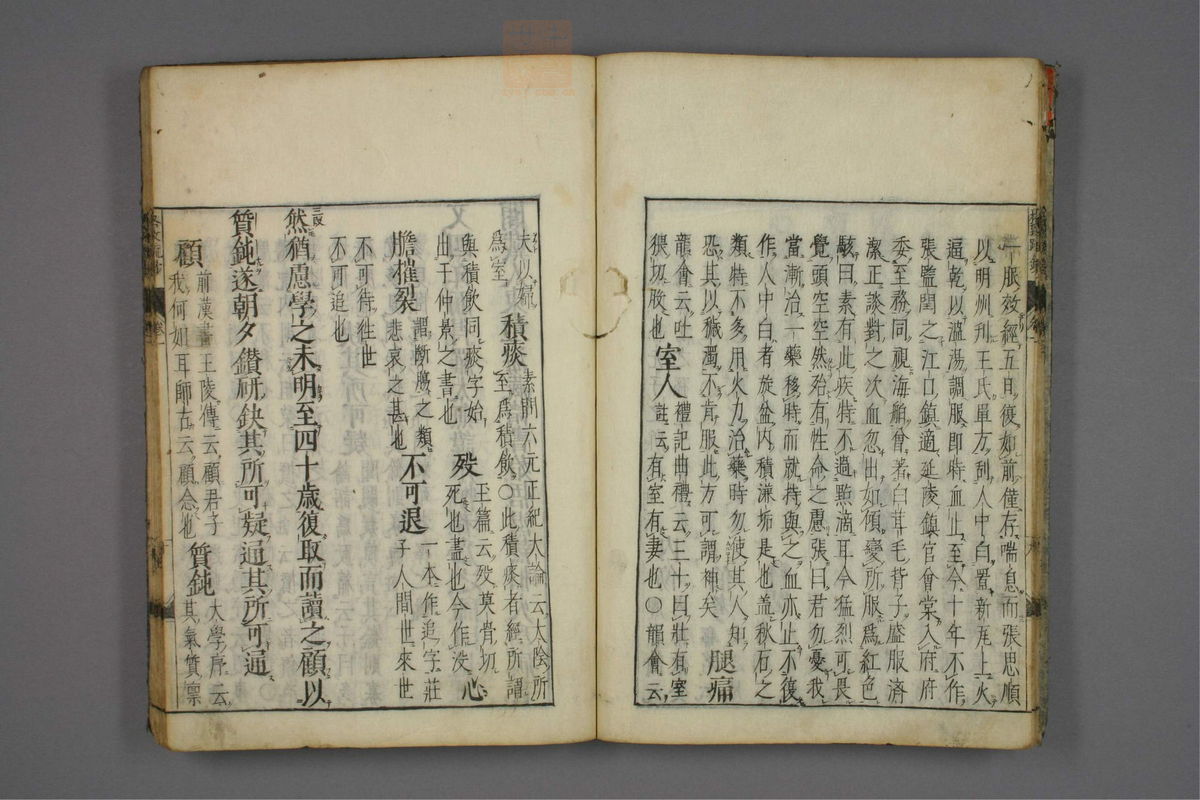 一服效經五日復如前僅存喘息而張思順
以明州刋王氏單方刋人中白置新瓦上火
逼乾以溫湯調服即時血止至今十年不作
張監閏之江口鎮適延陵鎮官會棠入府府
委至務同視海舶會著白茸毛背子盛服濟
潔正談對之次血忽出如傾變所服爲紅色
駭曰素有此疾特不過點滴耳今猛烈可畏
覺頭空空然殆有性命之慮張曰君勿憂我
當漸治一藥移時而就持與之血亦止不復
作人中白者旋盆内積溓垢是也盖秋石之
類特不多用火力治藥時勿使其人知
恐其以穢濁不肯服此方可謂神矣 腿痛
龍會云吐
猥切股也 室人 禮記曲禮云三十曰壯有室
註云有室有妻也〇韻會云
夫以婦
爲室 積痰 素問六元正紀大論云太陰所
至爲積飲〇此積痰者經所謂
與積飲同痰字始
出于仲景之書也 歿 玉篇云歿莫骨切
死也盡也今作没 心
膽摧裂 謂断膓之類
悲哀之甚也 不可退 一本作追字莊
子人間世來世
不可待往世
不可追也
然猶慮學之未明至四十歳復取而讀之顧以
質鈍遂朝夕鑽研缺其所可疑通其所可通
顧 前漢書王陵傳云顧君子
我何如耳師古云顧念也 質鈍 大學序云
其氣質禀